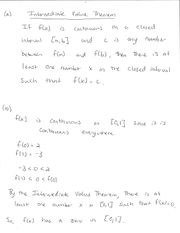 (a) Intermediate Value Theorem
If f(x) is continuous on a closed
interval [a,b] and c is any number
between f(a) and f(b), then there is at
least one number x in the closed interval
such that f(x) = c.
(b)
f(x) is continuous on [0,1] since it is
continuous everywhere
f(0) = 2
f(1) = -3
-3 < 0 < 2
f(1) < 0 < f(0)
By the Intermediate Value Theorem, there is at
least one number x in [0,1] such that f(x)=0.
So f(x) has a zero in [0,1].